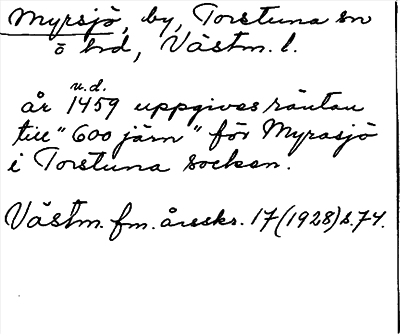 Myrsjö, by, Torstuna sn
ö hd, Västm. l.
u.d.
år 1459 uppgives räntan
till "600 järn" för Myrasjö
i Torstuna socken.
Västm. fm. årsskr. 17 (1928) s. 74.